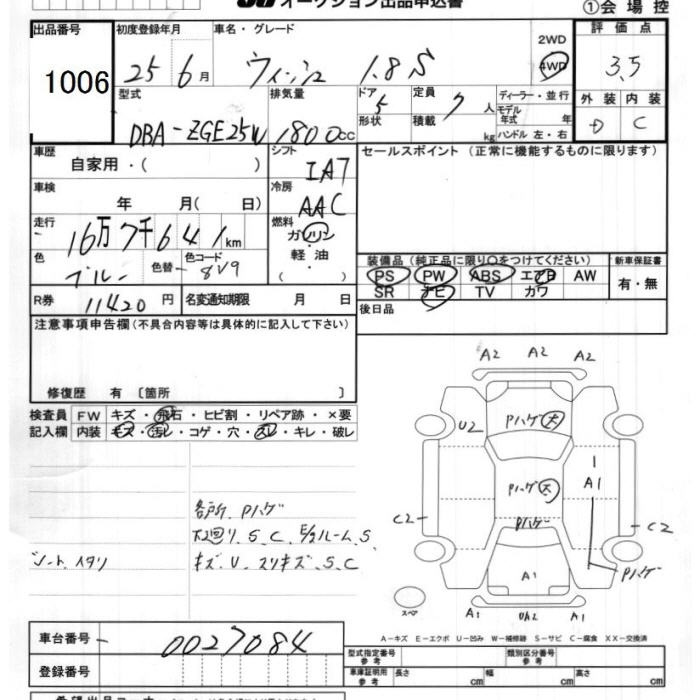 オークション出品申込書
①会場控
出品番号
1006
初度登録年月
25 6月
車名・グレード
ウィッシュ 1.8S
2WD
4WD
評価点
3.5
型式
DBA-ZGE25W
排気量
1800cc
ドア 5
形状
定員 7人
積載 kg
ディーラー・並行
モデル年式 年
ハンドル 左・右
外装 内装
D C
車歴
自家用・( )
シフト
IA7
セールスポイント (正常に機能するものに限ります)
車検
年 月( 日)
冷房
AAC
走行
16万7千641km
燃料
ガソリン
軽・油
( )
色
ブルー
色替
色コード
8V9
装備品(純正品に限り○をつけてください)
新車保証書
PS PW ABS エアB AW
SR ナビ TV カワ
有・無
R券 11420円
名変通知期限 月 日
後日品
注意事項申告欄(不具合内容等は具体的に記入して下さい)
修復歴 有〔箇所 〕
検査員記入欄
FW キズ・飛石・ヒビ割・リペア跡・×要
内装 キズ・汚レ・コゲ・穴・スレ・キレ・破レ
各所、Pハゲ
下回り、S、C、E/ルーム、S
シート、スタリ
キズ、U、スリキズ、S、C
A2 A2 A2
Pハゲ大
U2
1
A1
Pハゲ大
Pハゲ
C2
C2
Pハゲ
A1
スペ
A1 A1
A-キズ E-エクボ U-凹み W-補修跡 S-サビ C-腐食 XX-交換済
車台番号
0027084
登録番号
型式指定番号 参考
類別区分番号 参考
車庫証明用 参考
長さ cm 幅 cm 高さ cm